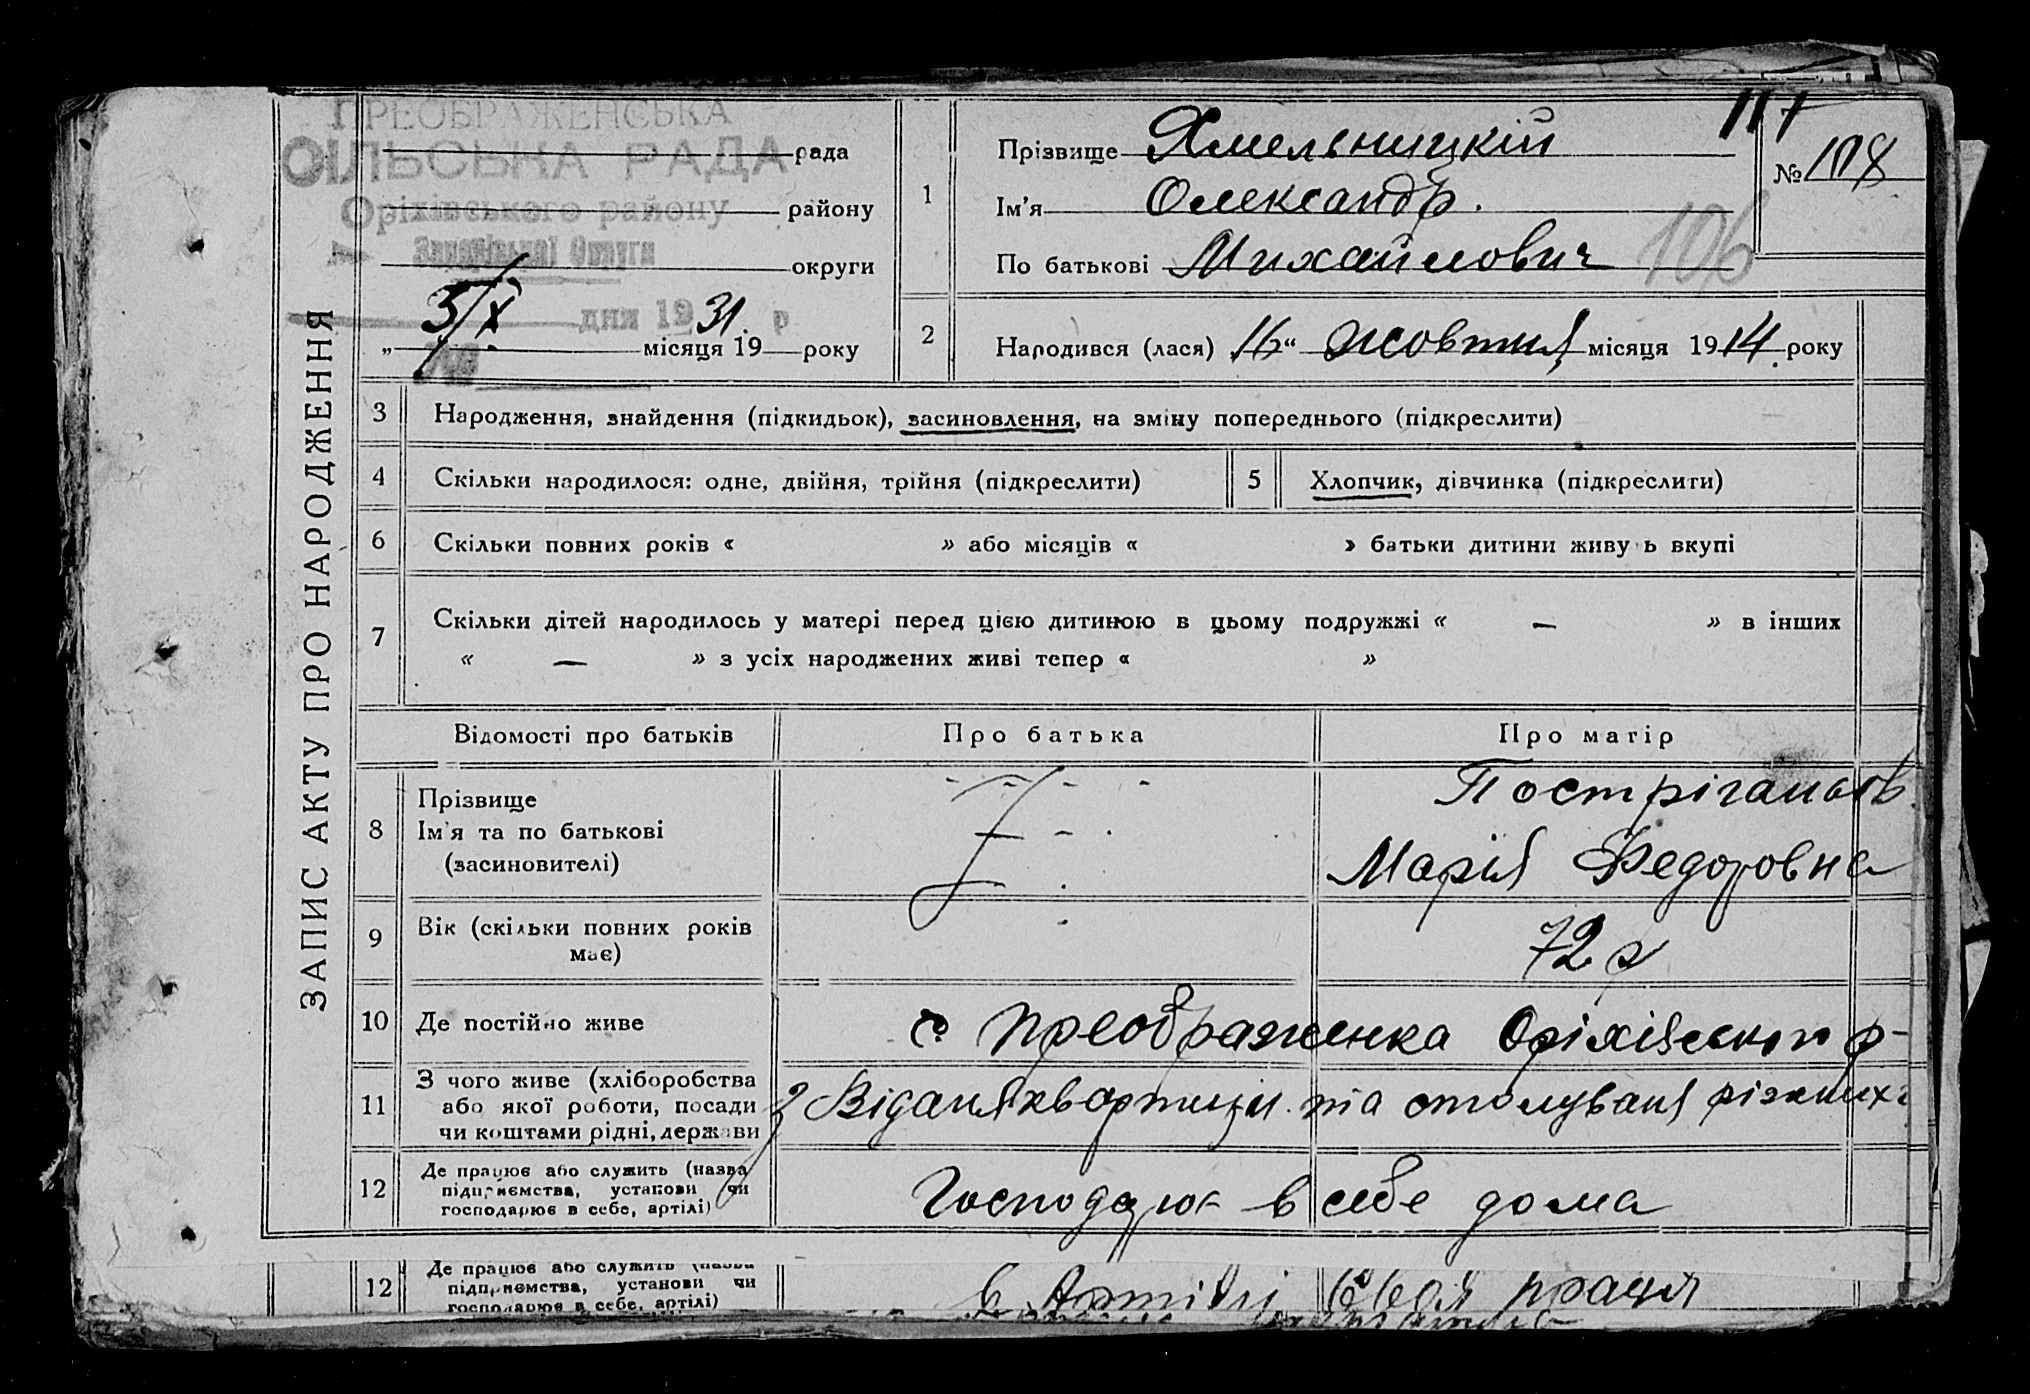 ЗАПИС АКТУ ПРО НАРОДЖЕННЯ
ПРЕОБРАЖЕНСЬКА
СІЛЬСЬКА РАДА
рада
Оріхівського району
району
Запорізької Округи
округи
5/X
дня 1931. р
„ місяця 19 року
1
Прізвище Хмельницкій
Ім'я Олександр.
По батькові Михайлович
117
№ 108
106
2
Народився (лася) „16“ жовтня місяця 1914 року
3 Народження, знайдення (підкидьок), засиновлення, на зміну попереднього (підкреслити)
4 Скільки народилося: одне, двійня, трійня (підкреслити)
5 Хлопчик, дівчинка (підкреслити)
6 Скільки повних років « » або місяців « » батьки дитини живуть вкупі
7 Скільки дітей народилось у матері перед цією дитиною в цьому подружжі « — » в інших
« — » з усіх народжених живі тепер « »
Відомості про батьків
Про батька
Про матір
8 Прізвище
Ім'я та по батькові
(засиновителі)
Марія Федоровна
9 Вік (скільки повних років
має)
72 р
10 Де постійно живе
с. Преображенка Оріхівского р-
11 З чого живе (хліборобства
або якої роботи, посади
чи коштами рідні, держави
з Віданя квартири та столуваня різних
12 Де працює або служить (назва
підприємства, установи чи
господарює в себе, артілі)
Господарює в себе дома
12 Де працює або служить (назва
підприємства, установи чи
господарює в себе, артілі)
в Артілі своя праця